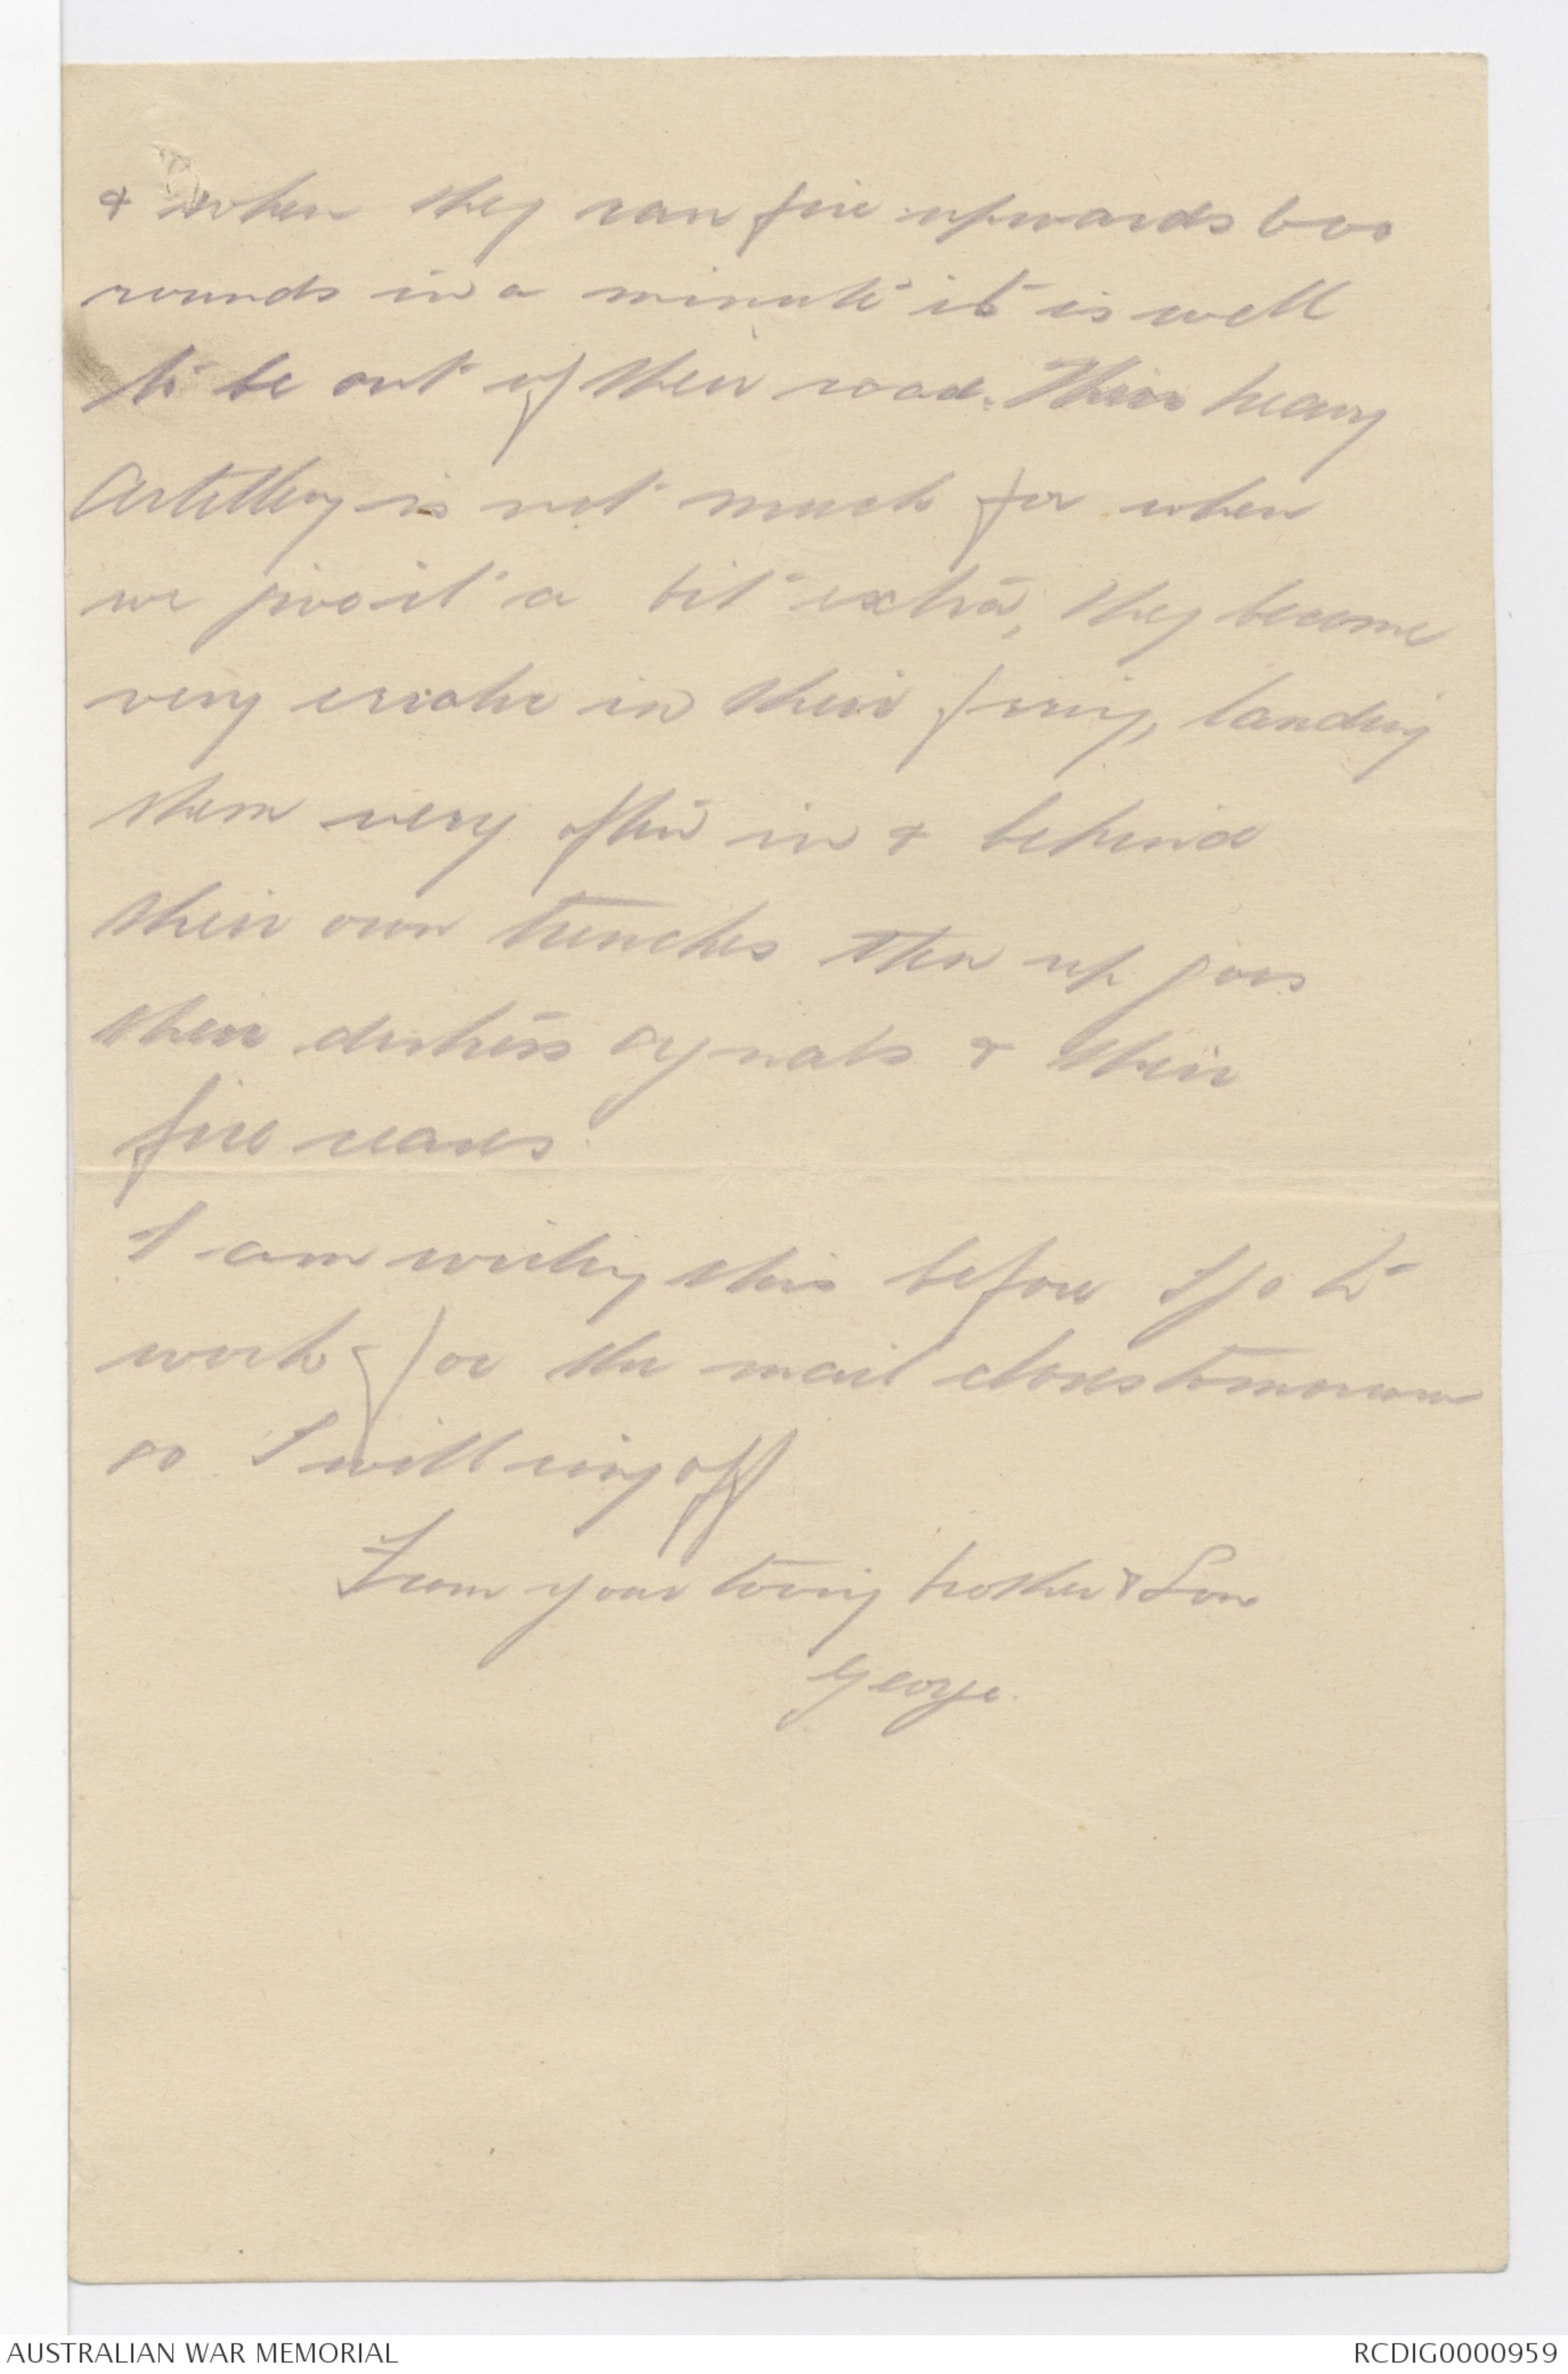 & when they can fire upwards 600
rounds in a minute it is well
to be out of their road. Their heavy
Artillery is not much for when
we give it a bit extra, they become
very erratic in their firing, landing
them very often in & behind
their own trenches then up goes
their distress signals & their
fire ceases.
I am writing this before I go to
work for the mail closes tomorrow
so I will ring off
From your loving brother & Son
George.
AUSTRALIAN WAR MEMORIAL
RCDIG0000959